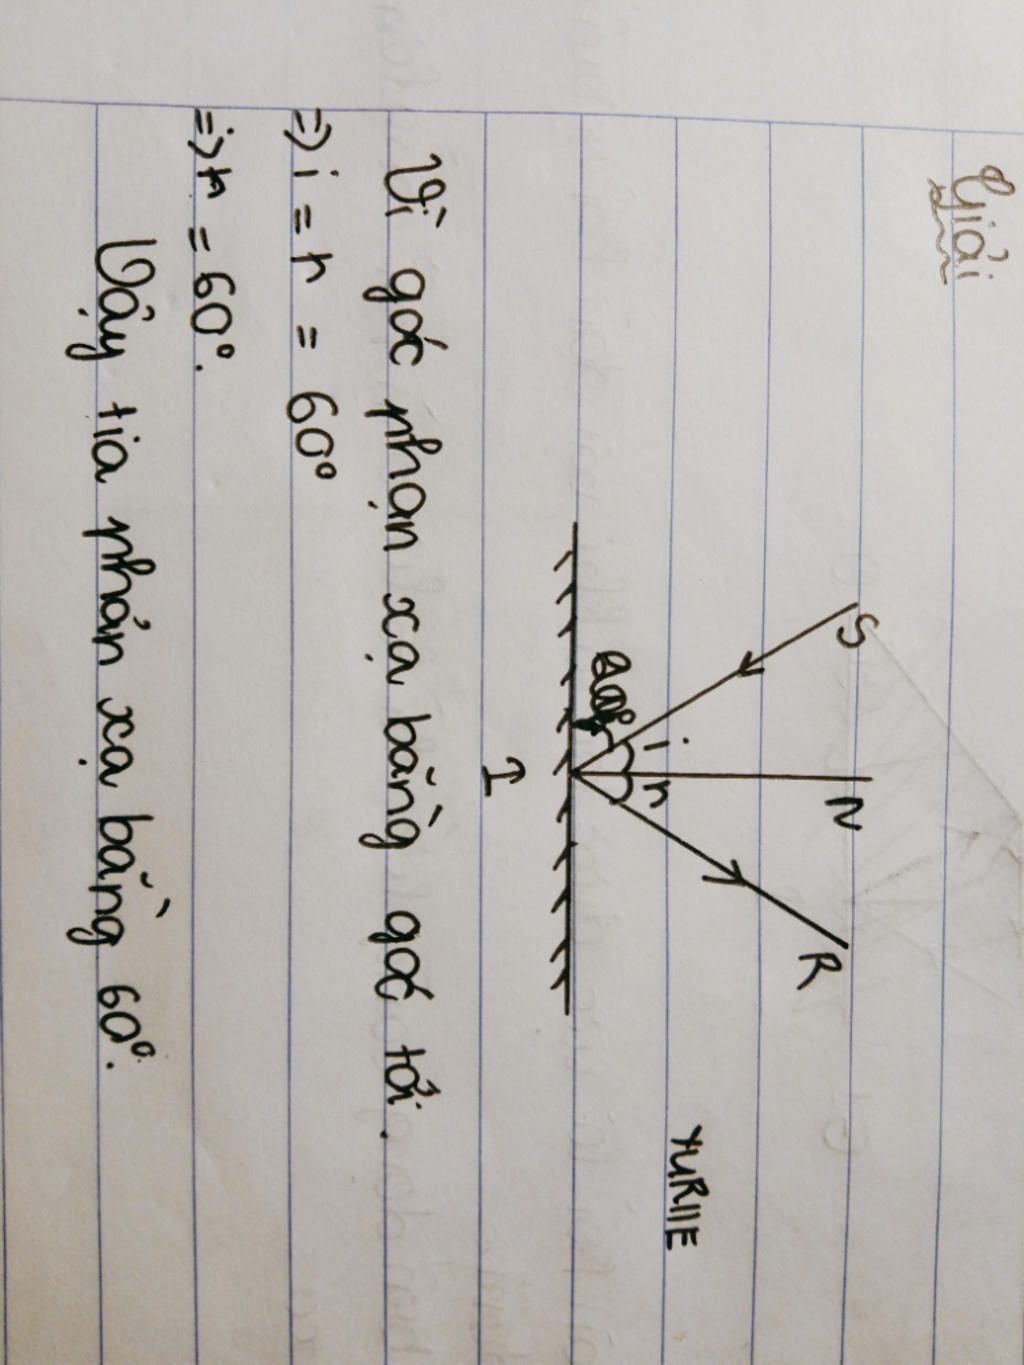 Giải
S
N
R
i
r
I
YURIIE
Vì góc phạn xạ bằng góc tới.
=> i = r = 60°
=> r = 60°.
Vậy tia phản xạ bằng 60°.